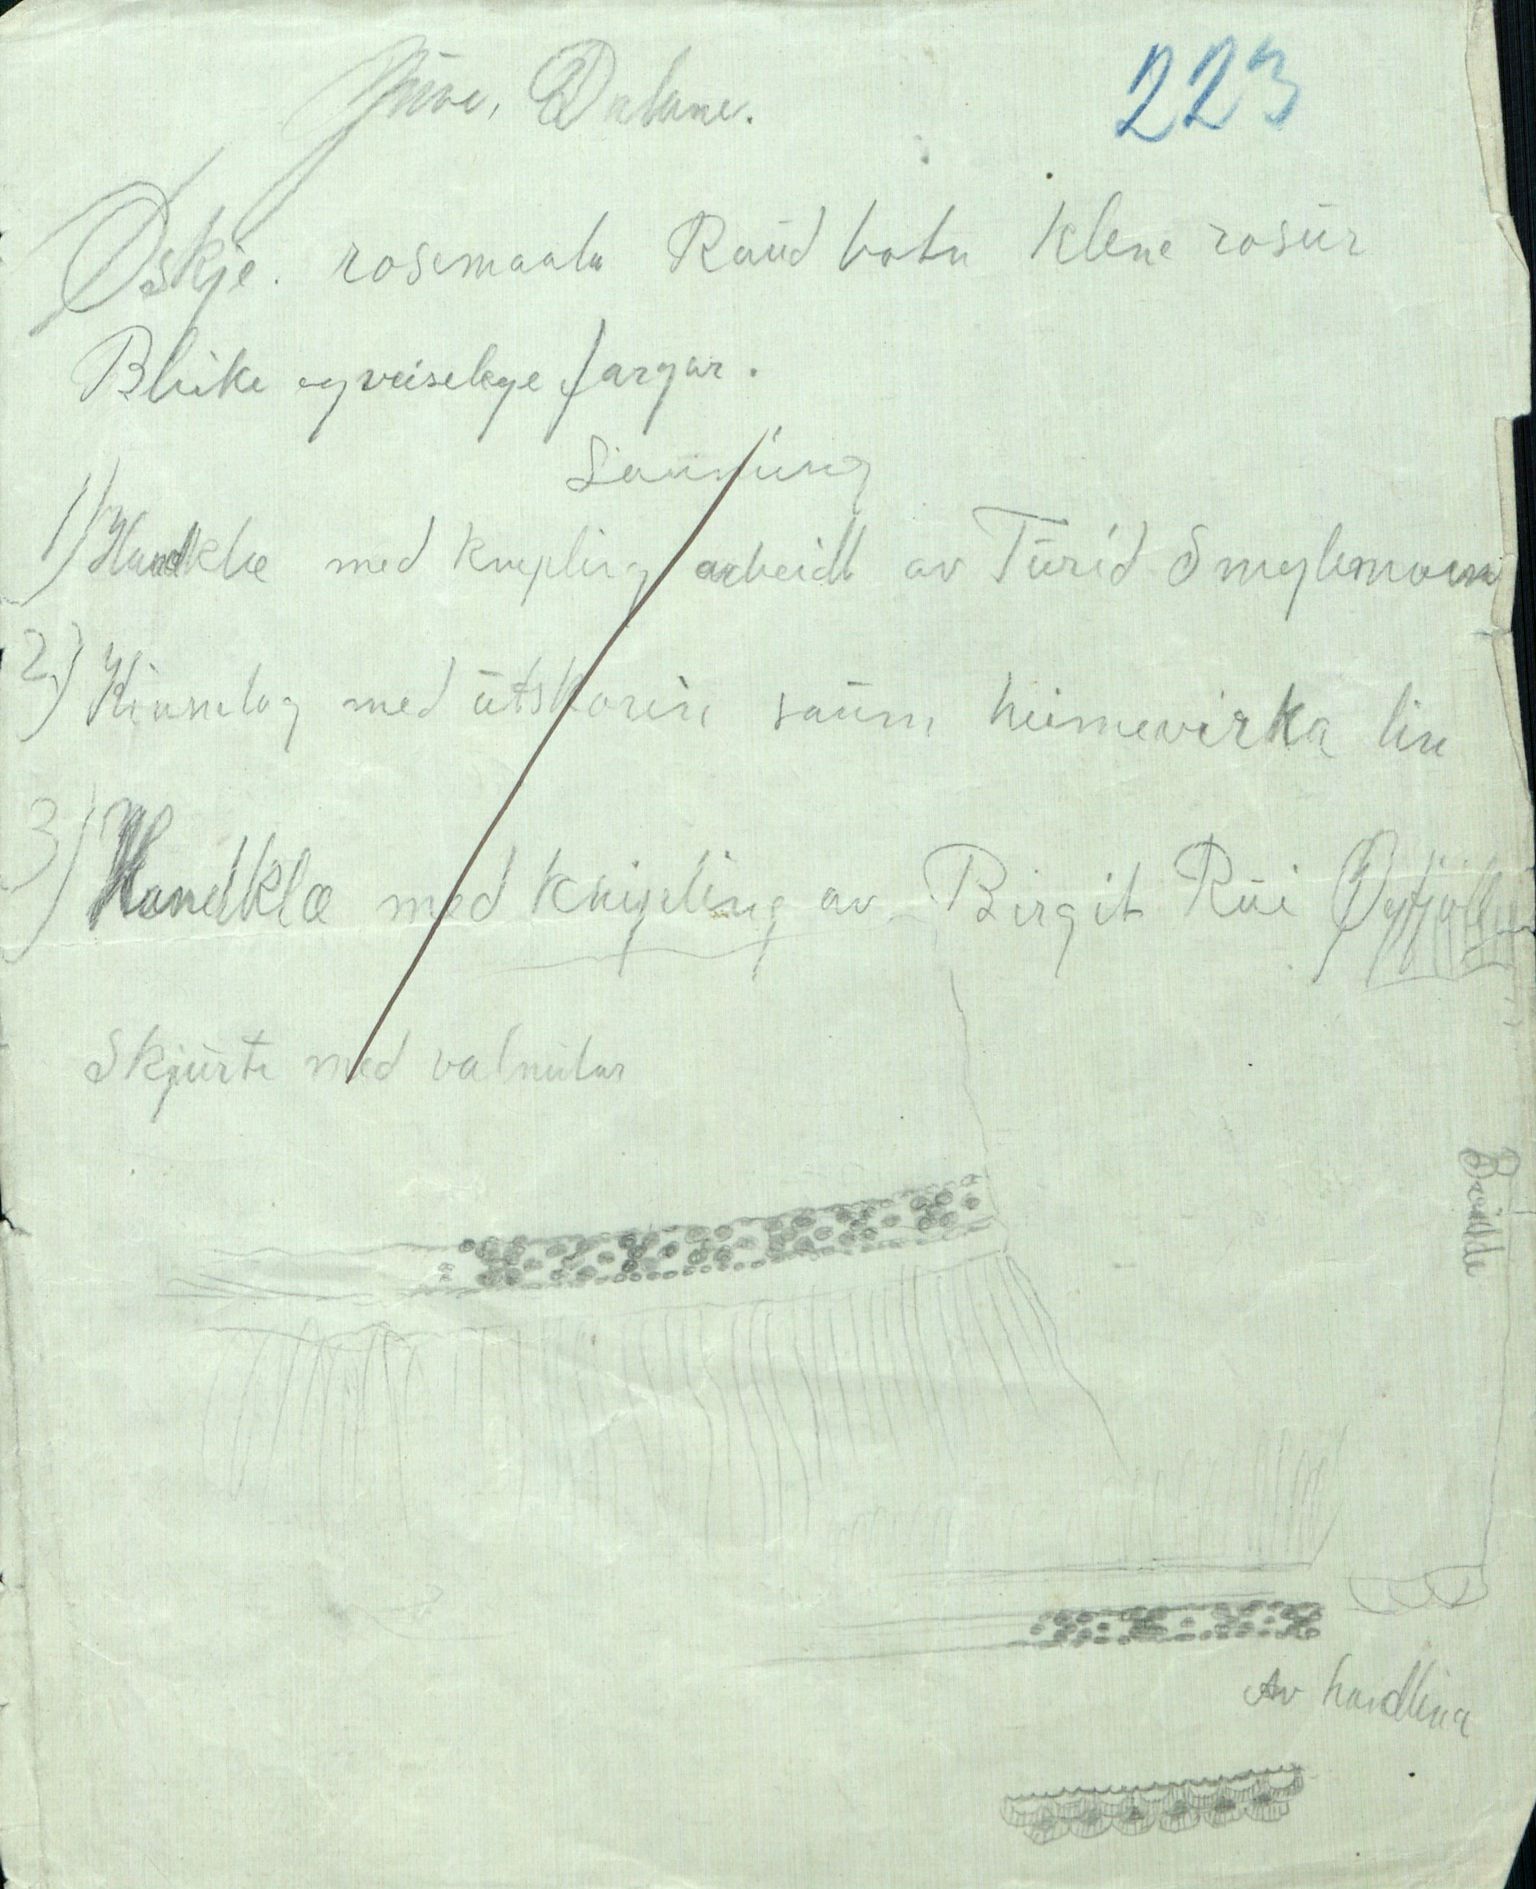 223
Juve, Dalane.
Øskje. rosemaala Raud botn Klene rosur
Bleike og veiselege fargar.
Sausung
1) Handklæ med knepling arbeidt av Turid Smylemoen
2) med utskorin saum heimevirka lin
3) Handklæ med knipling av Birgit Rui Øyfjell
Skjurte med valnutar
Av handlina